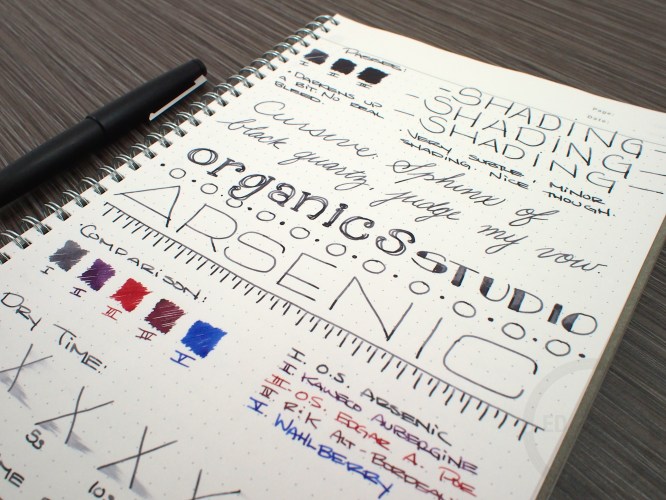 PASSES:
I II III
• DARKENS UP
A BIT. NO REAL
BLEED.
Page:
Date:
-SHADING-
-SHADING-
-SHADING-
• VERY SUBTLE, MINOR
SHADING. NICE THOUGH.
Cursive: Sphinx of
black quartz, judge my vow.
organics STUDIO
ARSENIC
COMPARISON:
I II III IV V
I O.S. ARSENIC
II KAWECO AUBERGINE
III O.S. EDGAR A. POE
IV R:K ALT-BORDEAUX
V WAHLBERRY
DRY TIME:
5s
10s